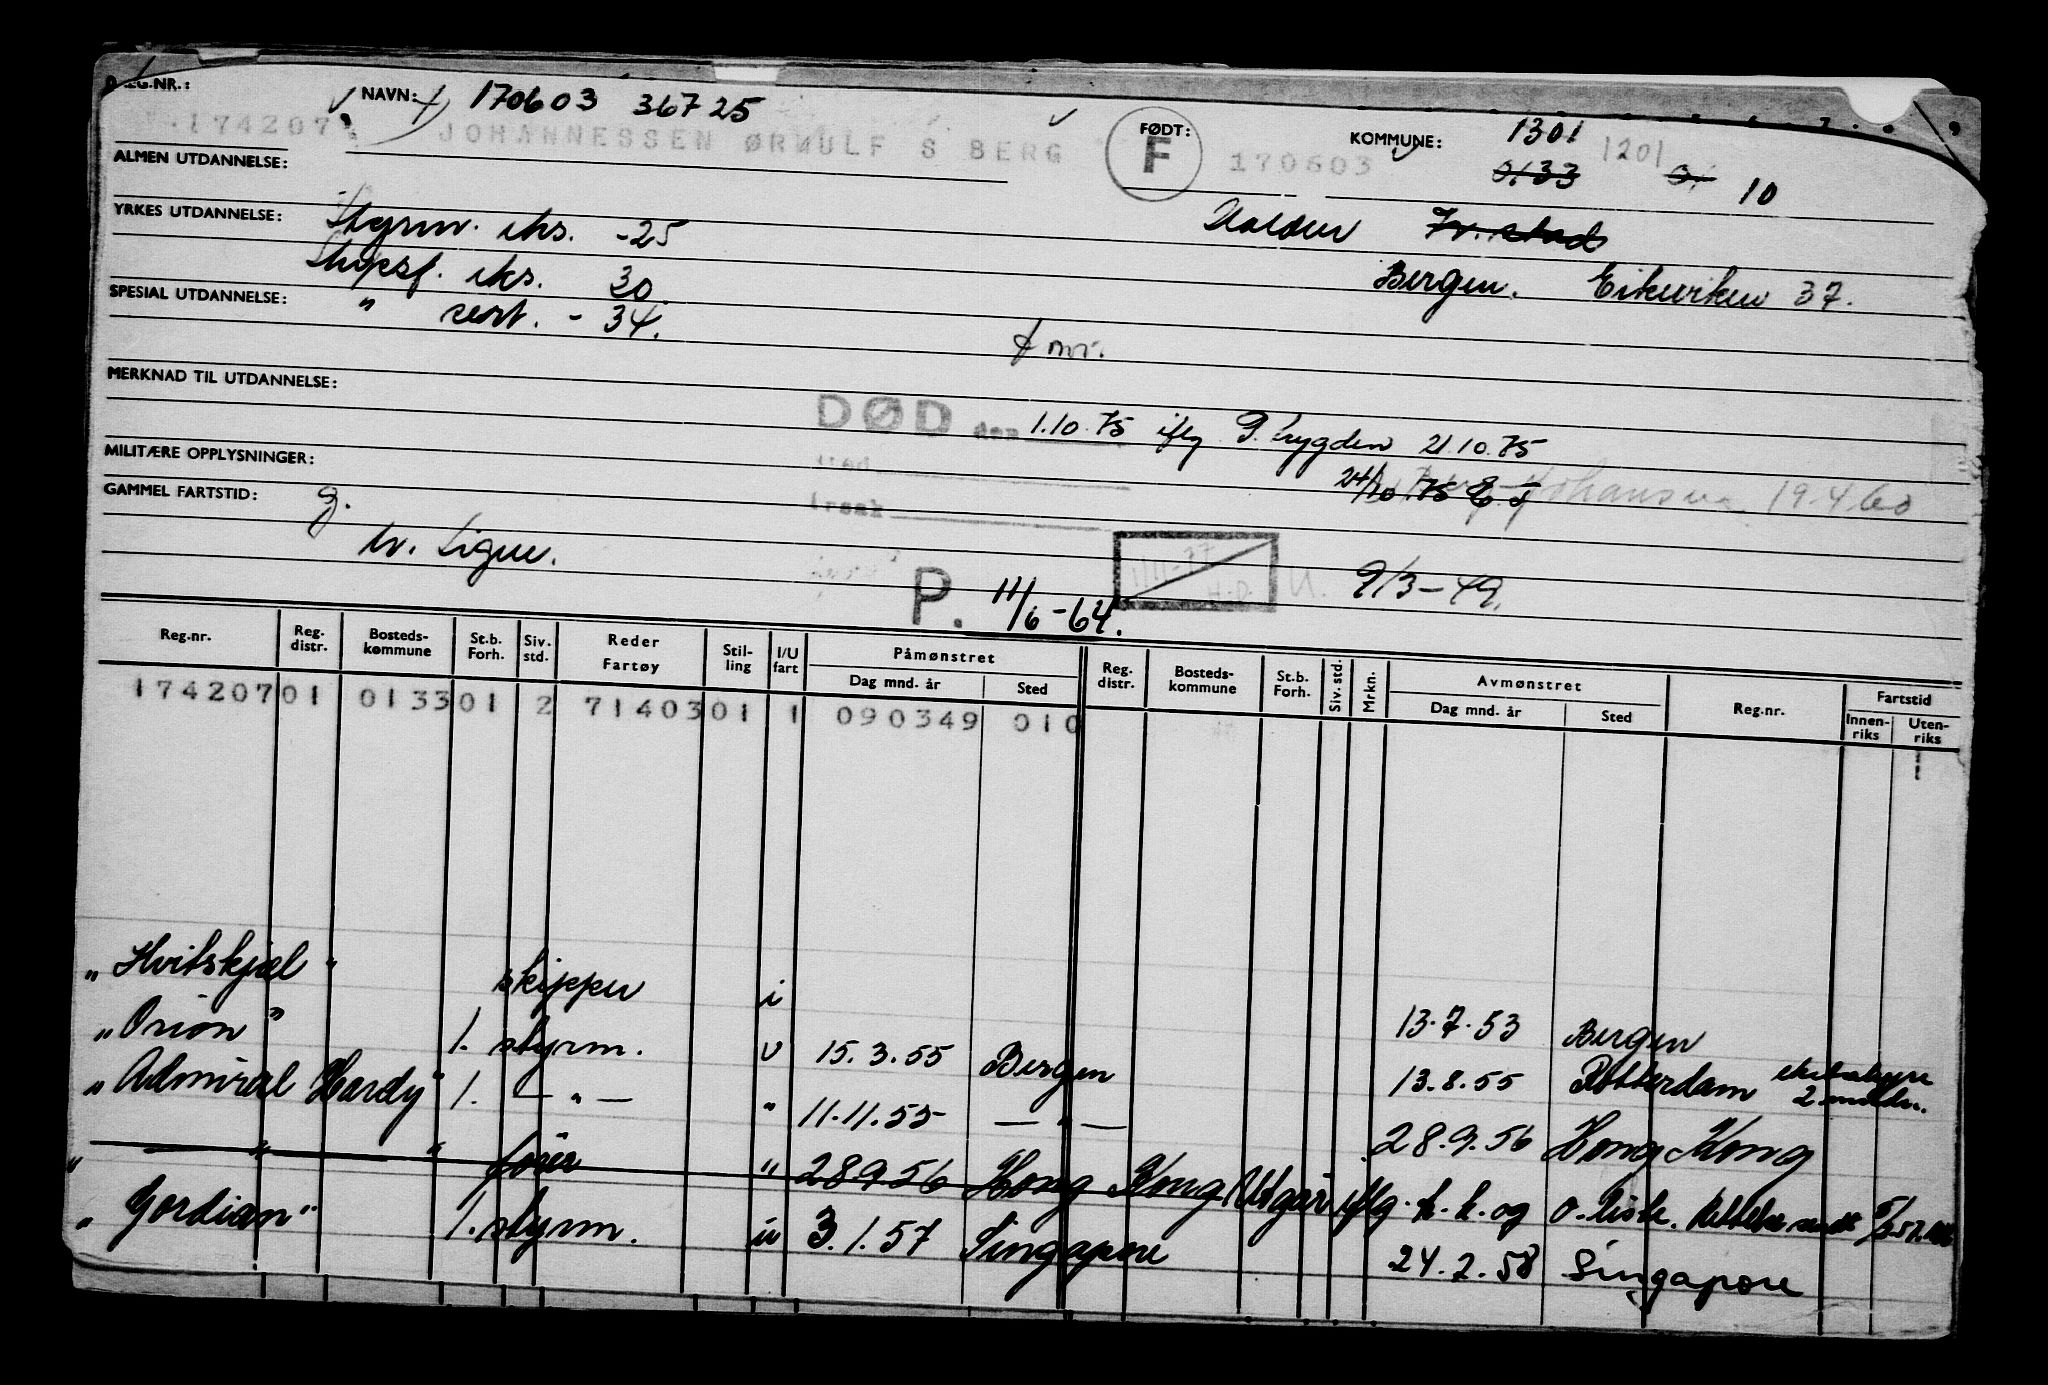 REG.NR.: NAVN: 170603 36725
174207 JOHANNESSEN ØRNULF S BERG FØDT: F 170603 KOMMUNE: 1301 1201
ALMEN UTDANNELSE: 0133 10
YRKES UTDANNELSE: Styrm. eks. -25 Halden Fr.stad
Skipsf. eks. 30. Bergen. Eikeviken 37.
SPESIAL UTDANNELSE: " sert. - 34.
MERKNAD TIL UTDANNELSE:
DØD den 1.10.75 iflg P.trygden 21.10.75
MILITÆRE OPPLYSNINGER: ved 24/10.75 E.J
Johansen 19.4.60
GAMMEL FARTSTID: g. årsak
P. 11/6-64. 9/3-49.
Reg.nr. Reg. distr. Bosteds-kommune St.b. Forh. Siv. std. Reder Fartøy Stil-ling I/U fart Påmønstret Dag mnd. år Sted Reg. distr. Bosteds-kommune St.b. Forh. Siv. std. Mrkn. Avmønstret Dag mnd. år Sted Reg.nr. Fartstid Innen-riks Uten-riks
174207 01 0133 01 2 71403 01 1 090349 010
"Hvitskjæl" skipper i 13.7.53 Bergen
"Orion" 1. styrm. u 15.3.55 Bergen 13.8.55 Rotterdam
"Admiral Hardy" 1. — " — " 11.11.55 — " — 28.9.56 Hong Kong
" " fører " 28956 Hong Kong Utgår iflg. h.h. og o-liste.
"Gordian" 1. styrm. u 3.1.57 Singapore 24.2.58 Singapore